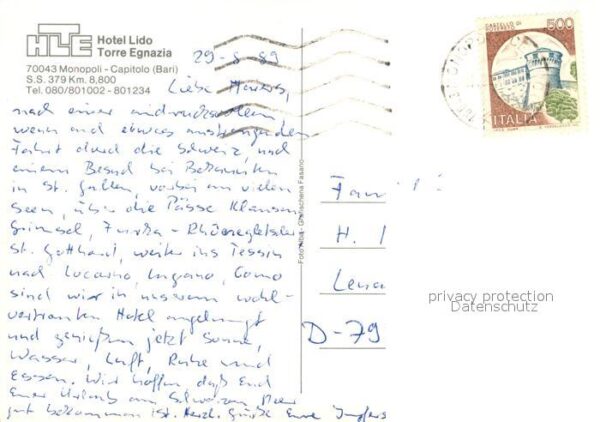 HLTE Hotel Lido
Torre Egnazia
70043 Monopoli - Capitolo (Bari)
S.S. 379 Km. 8,800
Tel. 080/801002 - 801234
29-8-89
Liebe
nach einer eindrucksvollen,
wenn auch etwas anstrengenden
Fahrt durch die Schweiz, und
einem Besuch bei Bekannten
in St. Gallen, vorbei an vielen
Seen, über die Pässe Klausen,
Grimsel, Furka - Rhônegletscher
St. Gotthard, weiter ins Tessin
nach Locarno, Lugano, Como
sind wir in unserem wohl-
vertrauten Hotel angelangt
und genießen jetzt Sonne,
Wasser, Luft, Ruhe und
Essen. Wir hoffen daß Euch
Euer Urlaub am Schwarzen Meer
gut bekommen ist. Herzl. Grüße Eure
Foto Alba - Grafischena Fasano
CASTELLO DI
ROVERETO
500
ITALIA
Fami
H. I
Lena
D-79
privacy protection
Datenschutz